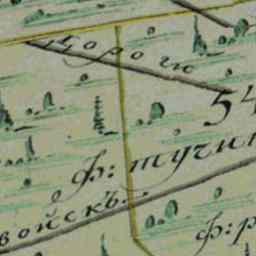 Дорогю
54
ф: тучи
войскъ
ф: р